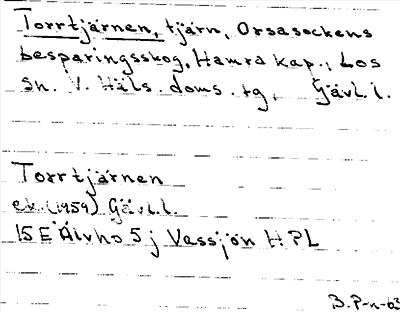 Torrtjärnen, tjärn, Orsasockens
besparingsskog, Hamra kap., Los
sn. V. Häls. doms. tg, Gävl. l.
Torrtjärnen
ek. (1959) Gävl. l.
15 E Älvho 5 j Vassjön H PL
B. P-n-63